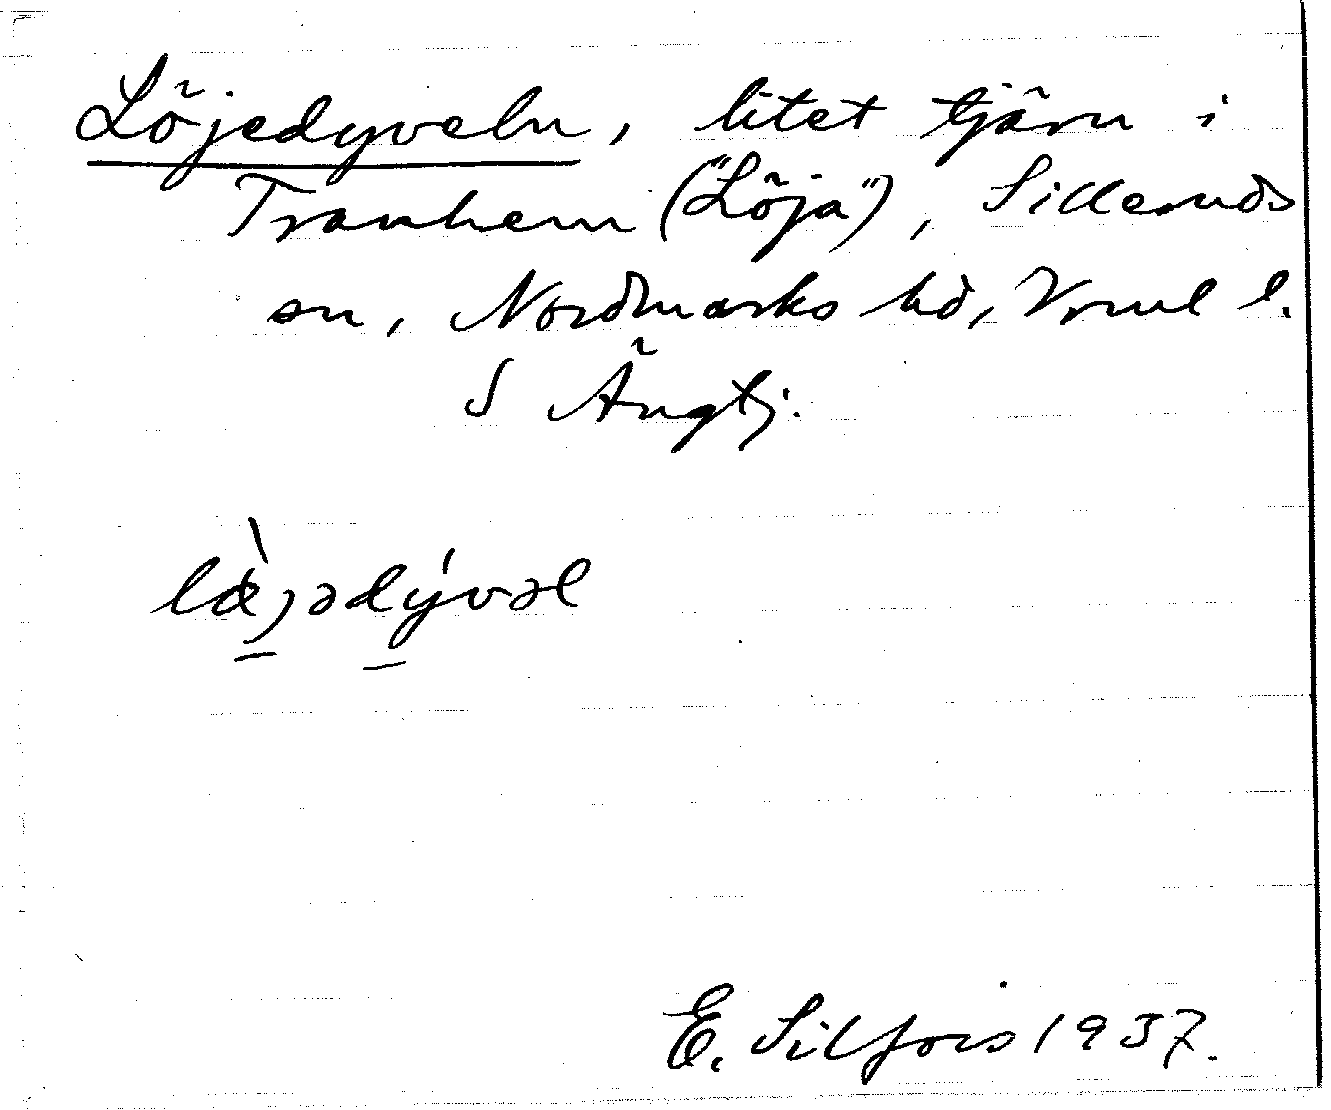 Löjedyveln, litet tjärn i
Tranhem ("Löja"), Silleruds
sn, Nordmarks hd, Vrml l.
S Ängtj.
lœ̀jədývəl
E. Silfors 1937.